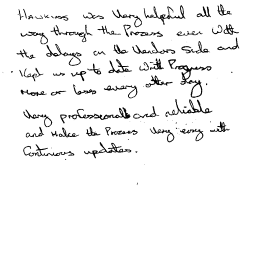 Hawkins was very helpful all the
way through the Process even with
the delays on the Vendors side and
Kept us up to date with Progress
more or less every other day.
Very professional and reliable
and make the Process very easy with
Continuous updates.